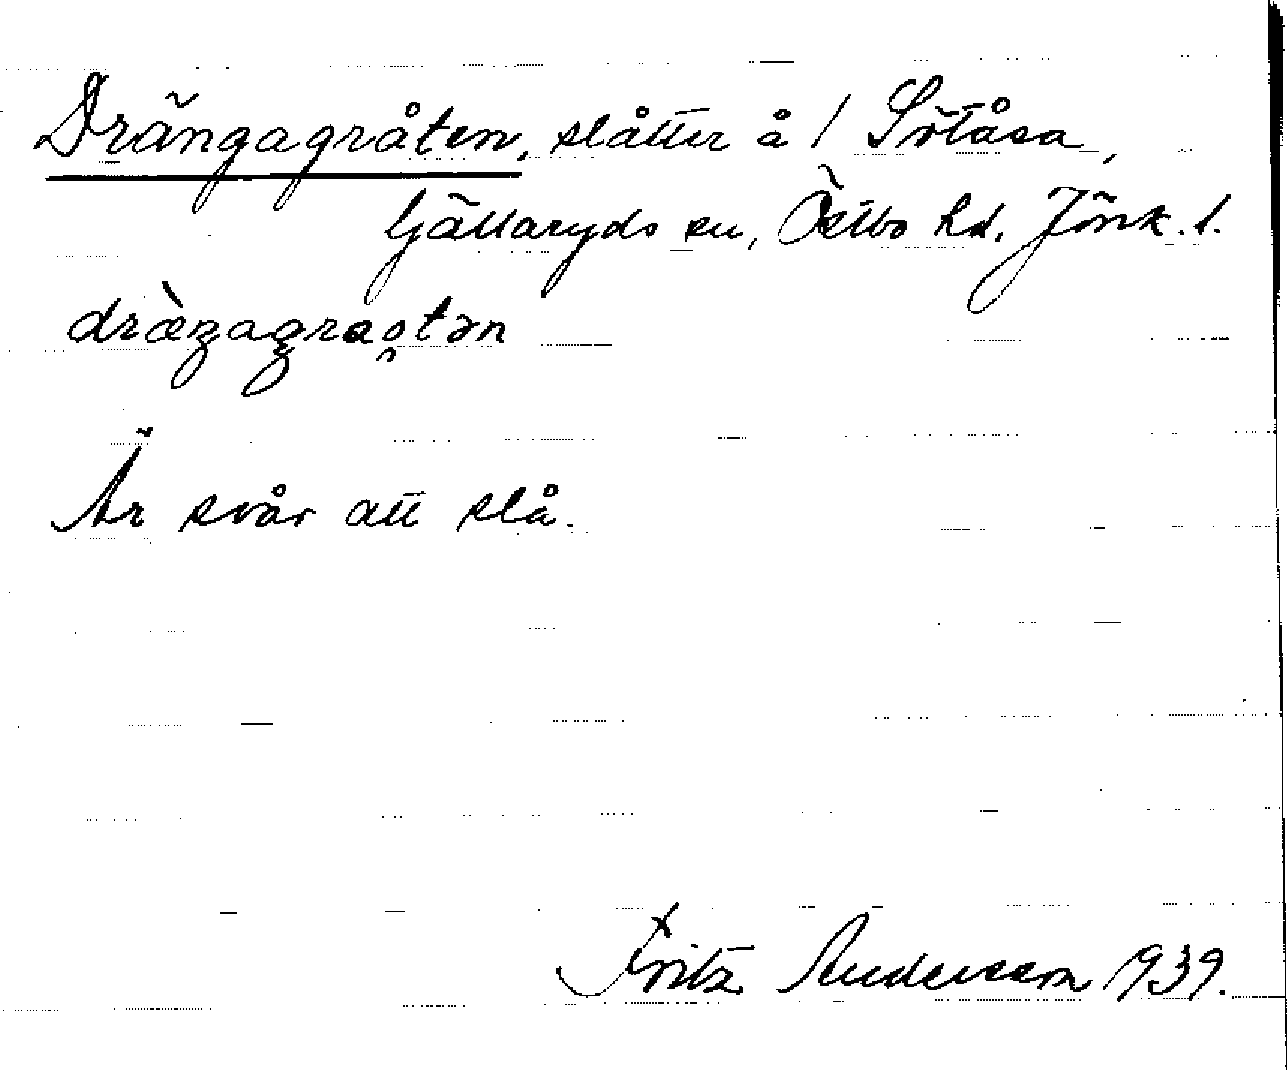 Drängagråten, slåtter å / Sötåsa,
Gällaryds sn, Östbo hd. Jönk. l.
dræ̀ŋagraotən
Är svår att slå.
Fritz Andersson 1939.